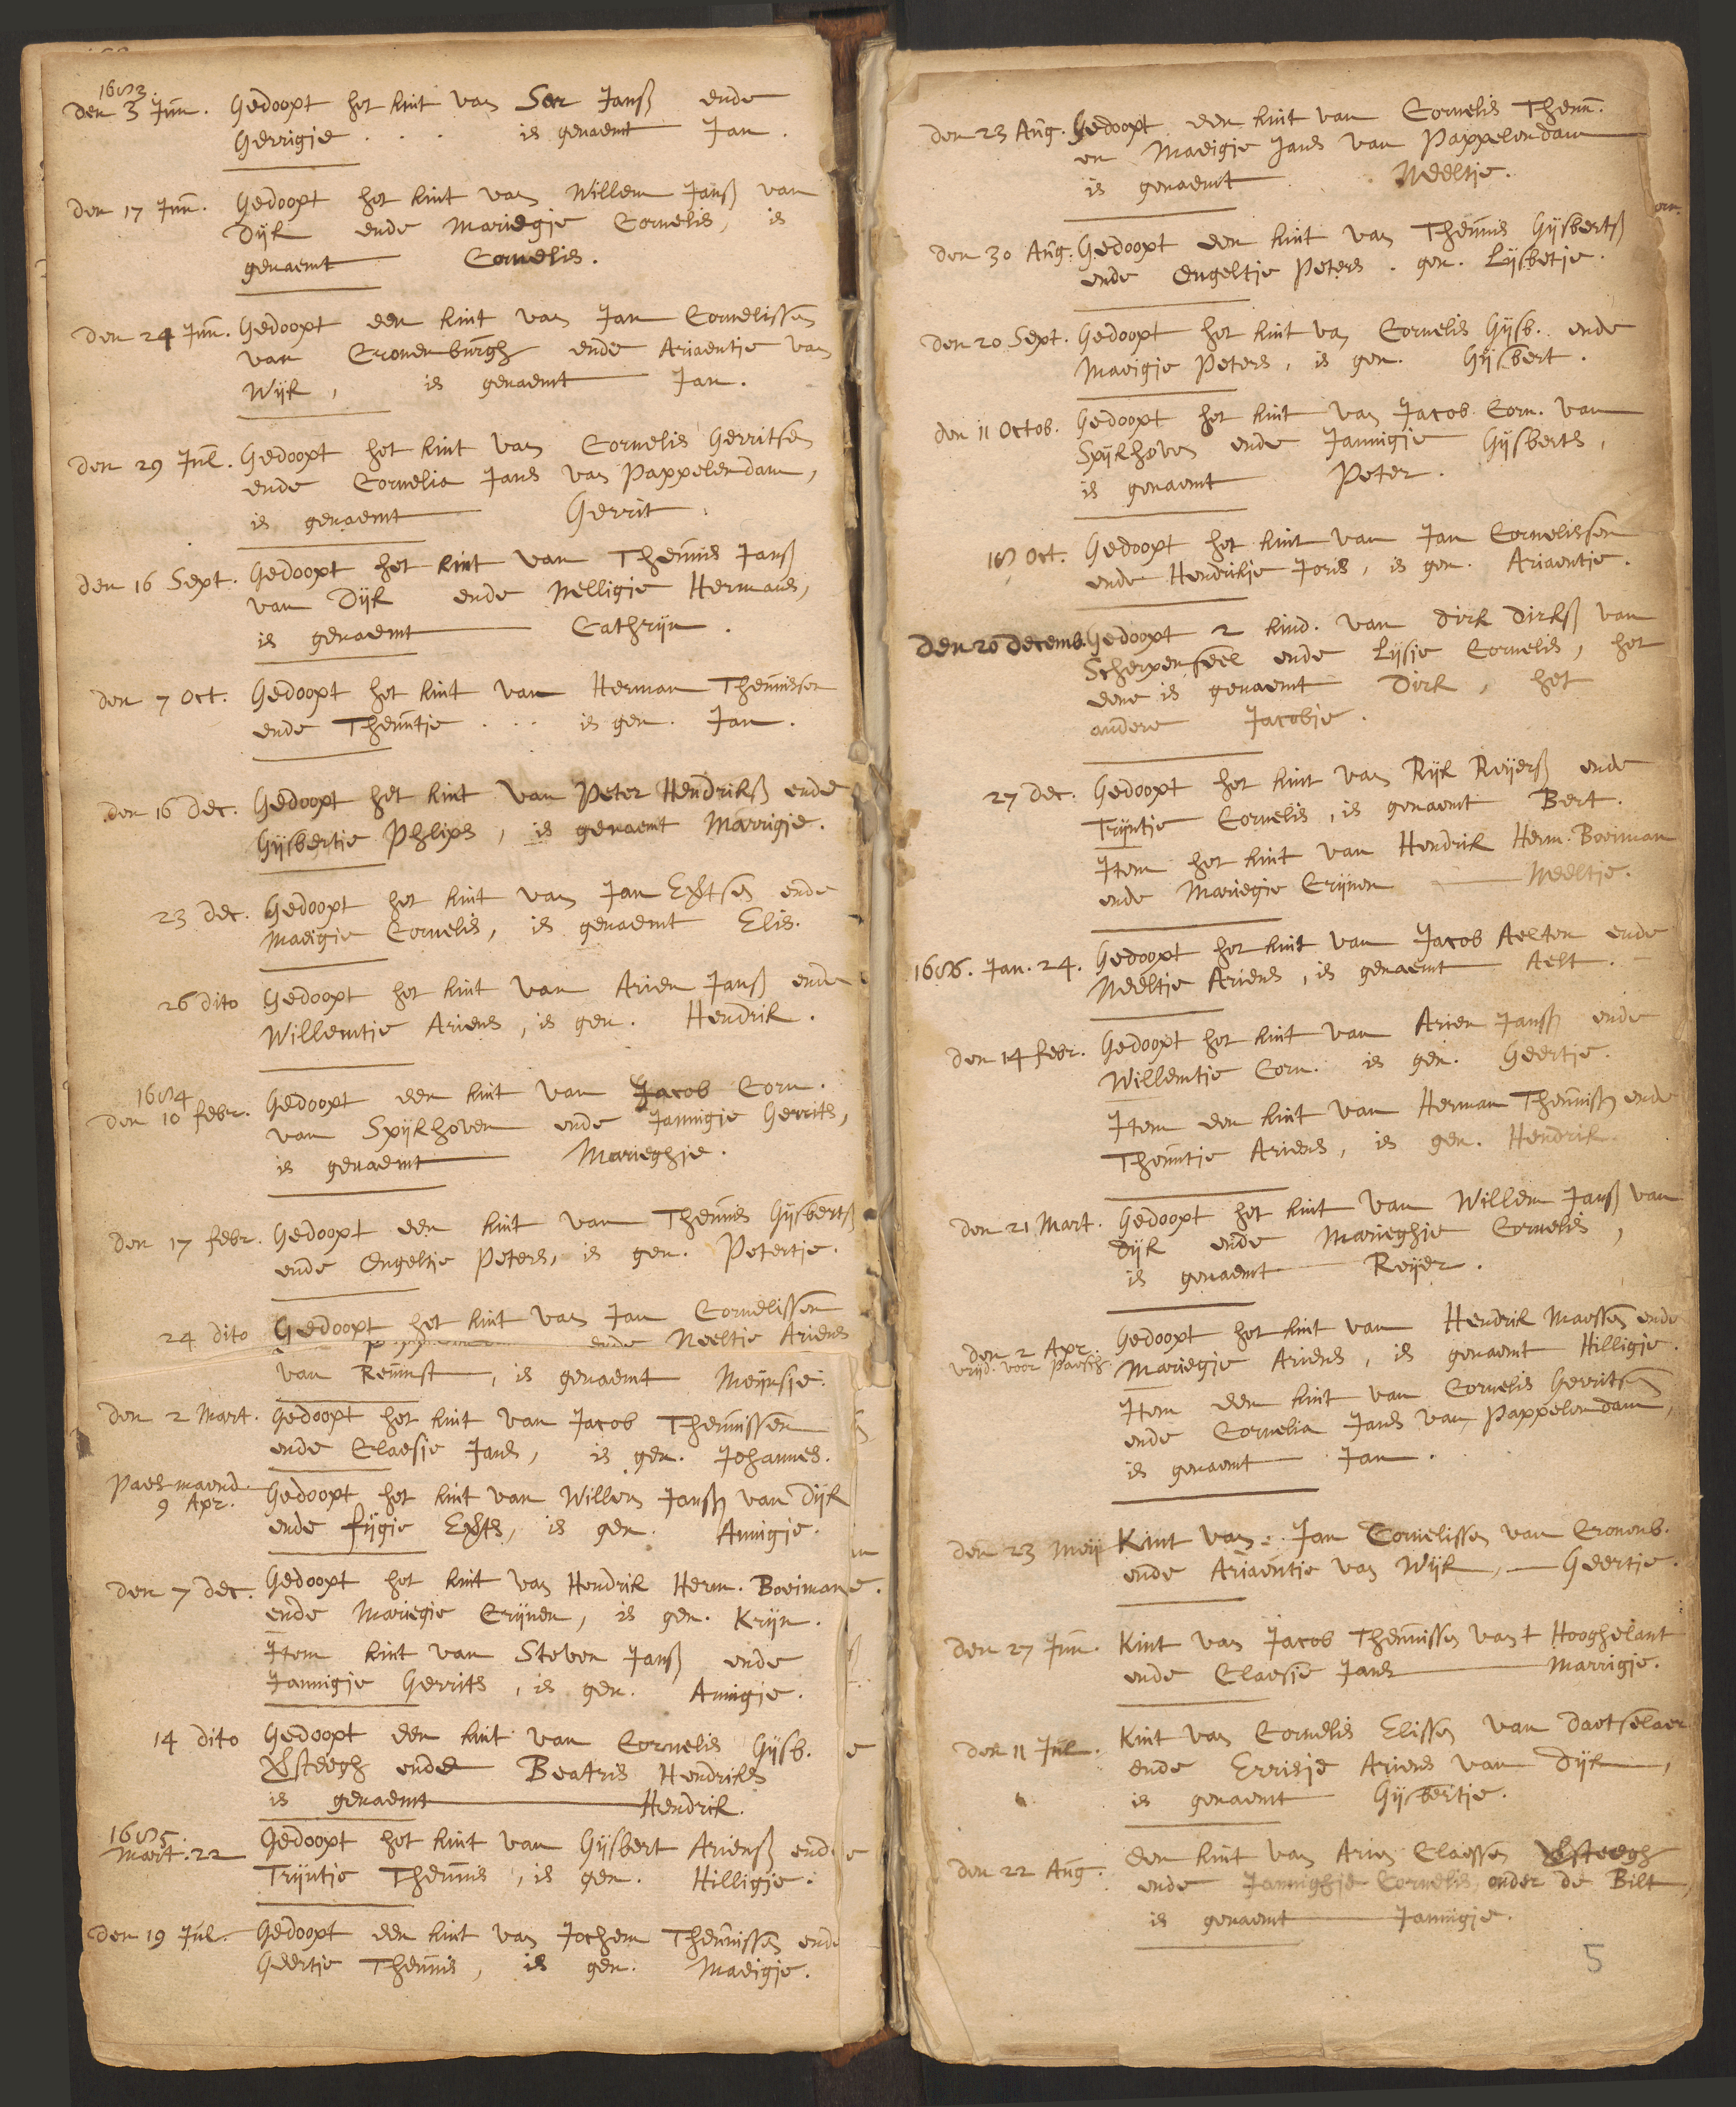 1653.
Den 3 Jun. Gedoopt het kint van Sar Janß ende
Gerrigje . . . is genaemt Jan.
Den 17 Jun. Gedoopt het kint van Willem Janß van
Dijk ende Mariegje Cornelis, is
genaemt Cornelis.
Den 24 Jun. Gedoopt een kint van Jan Cornelissen
van Cronenburgh ende Ariaentje van
Wijk, is genaemt Jan.
Den 29 Jul. Gedoopt het kint van Cornelis Gerritsen
ende Cornelia Jans van Pappelendam,
is genaemt Gerrit.
Den 16 Sept. Gedoopt het kint van Theunis Janß
van Dijk ende Nelligje Hermans,
is genaemt Cathrijn.
Den 7 Oct. Gedoopt het kint van Herman Theunissen
ende Theuntje . . . is gen. Jan.
Den 16 Dec. Gedoopt het kint van Peter Hendrikß ende
Gijsbertje Phlips, is genaemt Marrigje.
23 Dec. Gedoopt het kint van Jan Evertsen ende
Maeigje Cornelis, is genaemt Elis.
26 dito Gedoopt het kint van Arien Janß ende
Willemtje Ariens, is gen. Hendrik.
1654
Den 10 Febr. Gedoopt een kint van Jacob Corn.
van Spijkhoven ende Jannigje Gerrits,
is genaemt Marieghje.
Den 17 Febr. Gedoopt een kint van Theunis Gijsbertß
ende Engeltje Peters, is gen. Petertje.
24 dito Gedoopt het kint van Jan Cornelissen
ende Neeltje Ariens
van Remmst, is genaemt Meijnsje.
Den 2 Mart. Gedoopt het kint van Jacob Theunissen
ende Claesje Jans, is gen. Johannes.
Paesmaend.
9 Apr. Gedoopt het kint van Willem Janß van Dijk
ende Fijgje Everts, is gen. Annigje.
Den 7 Dec. Gedoopt het kint van Hendrik Herm. Boeiman
ende Mariegie Crijnen, is gen. Krijn.
Item kint van Steven Janß ende
Jannigje Gerrits, is gen. Annigje.
14 dito Gedoopt een kint van Cornelis Gijsb.
Versteegh ende Beatris Hendriks
is genaemt Hendrik.
1655.
Mart. 22 Gedoopt het kint van Gijsbert Arienß ende
Trijntje Theunis, is gen. Hilligje.
Den 19 Jul. Gedoopt een kint van Jochem Theunissen ende
Geertje Theunis, is gen. Maeigje.
Den 23 Aug. Gedoopt een kint van Cornelis Theun.
en Maeigje Jans van Pappelendam
is genaemt Neeltje.
Den 30 Aug. Gedoopt een kint van Theunis Gijsbertß
ende Engeltje Peters. gen. Lijsbetje.
Den 20 Sept. Gedoopt het kint van Cornelis Gijsb. ende
Maeigje Peters, is gen. Gijsbert.
Den 11 Octob. Gedoopt het kint van Jacob Corn. van
Spijkhoven ende Jannigje Gijsberts,
is genaemt Peter.
18 Oct. Gedoopt het kint van Jan Cornelissen
ende Hendrikje Joris, is gen. Ariaentje.
Den 20 Decemb. Gedoopt 2 kind. van Dirk Dirkß van
Scherpenseel ende Lijsje Cornelis, het
eene is genaemt Dirk, het
andere Jacobje.
27 Dec. Gedoopt het kint van Rijk Reijerß ende
Trijntje Cornelis, is genaemt Bert.
Item het kint van Hendrik Herm. Boeiman
ende Mariegje Crijnen Neeltje.
1656. Jan. 24. Gedoopt het kint van Jacob Aelten ende
Neeltje Ariens, is genaemt Aelt.
Den 14 Febr. Gedoopt het kint van Arien Janß ende
Willemtje Corn. is gen. Geertje.
Item een kint van Herman Theunisß ende
Theuntje Ariens, is gen. Hendrik.
Den 21 Mart. Gedoopt het kint van Willem Janß van
Dijk ende Marieghje Cornelis,
is genaemt Reijer.
Den 2 Apr.
vrijd. voor paesch. Gedoopt het kint van Hendrik Maessen ende
Mariegje Ariens, is genaemt Hilligje.
Item een kint van Cornelis Gerritsen
ende Cornelia Jans van Pappelendam,
is genaemt Jan.
Den 23 Meij Kint van Jan Cornelissen van Cronenb.
ende Ariaentje van Wijk, Geertje.
Den 27 Jun. Kint van Jacob Theunissen van t Hooghelant
ende Claesje Jans Marrigje.
Den 11 Jul. Kint van Cornelis Elissen van Daetselaer
ende Errisje Ariens van Dijk,
is genaemt Gijsbertje.
Den 22 Aug. Een kint van Arien Claessen Versteegh
ende Jannighje Cornelis, onder de Bilt,
is genaemt Jannigje.
5